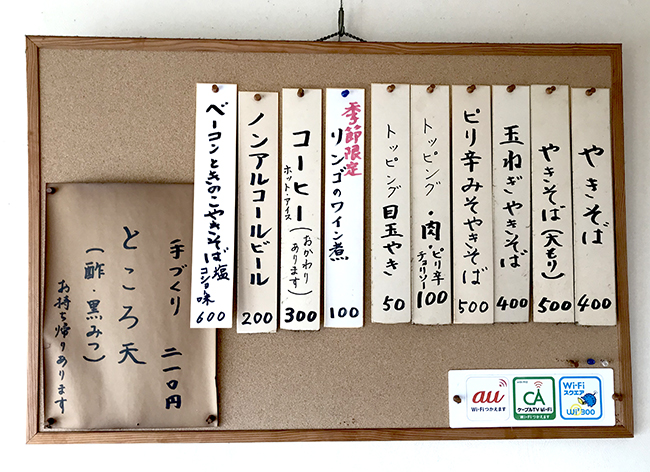 やきそば
400
やきそば(大もり)
500
玉ねぎやきそば
400
ピリ辛みそやきそば
500
トッピング・肉・ピリ辛
チョリソー
100
トッピング目玉やき
50
季節限定
リンゴのワイン煮
100
コーヒー(おかわり
あります)
ホット・アイス
300
ノンアルコールビール
200
ベーコンときのこやきそば塩
コショー味
600
手づくり 二一〇円
ところ天
(酢・黒みつ)
お持ち帰りあります
au
Wi-Fiつかえます
CA
ケーブルTV Wi-Fi
Wi-Fiつかえます
Wi-Fi
スクエア
Wi2 300